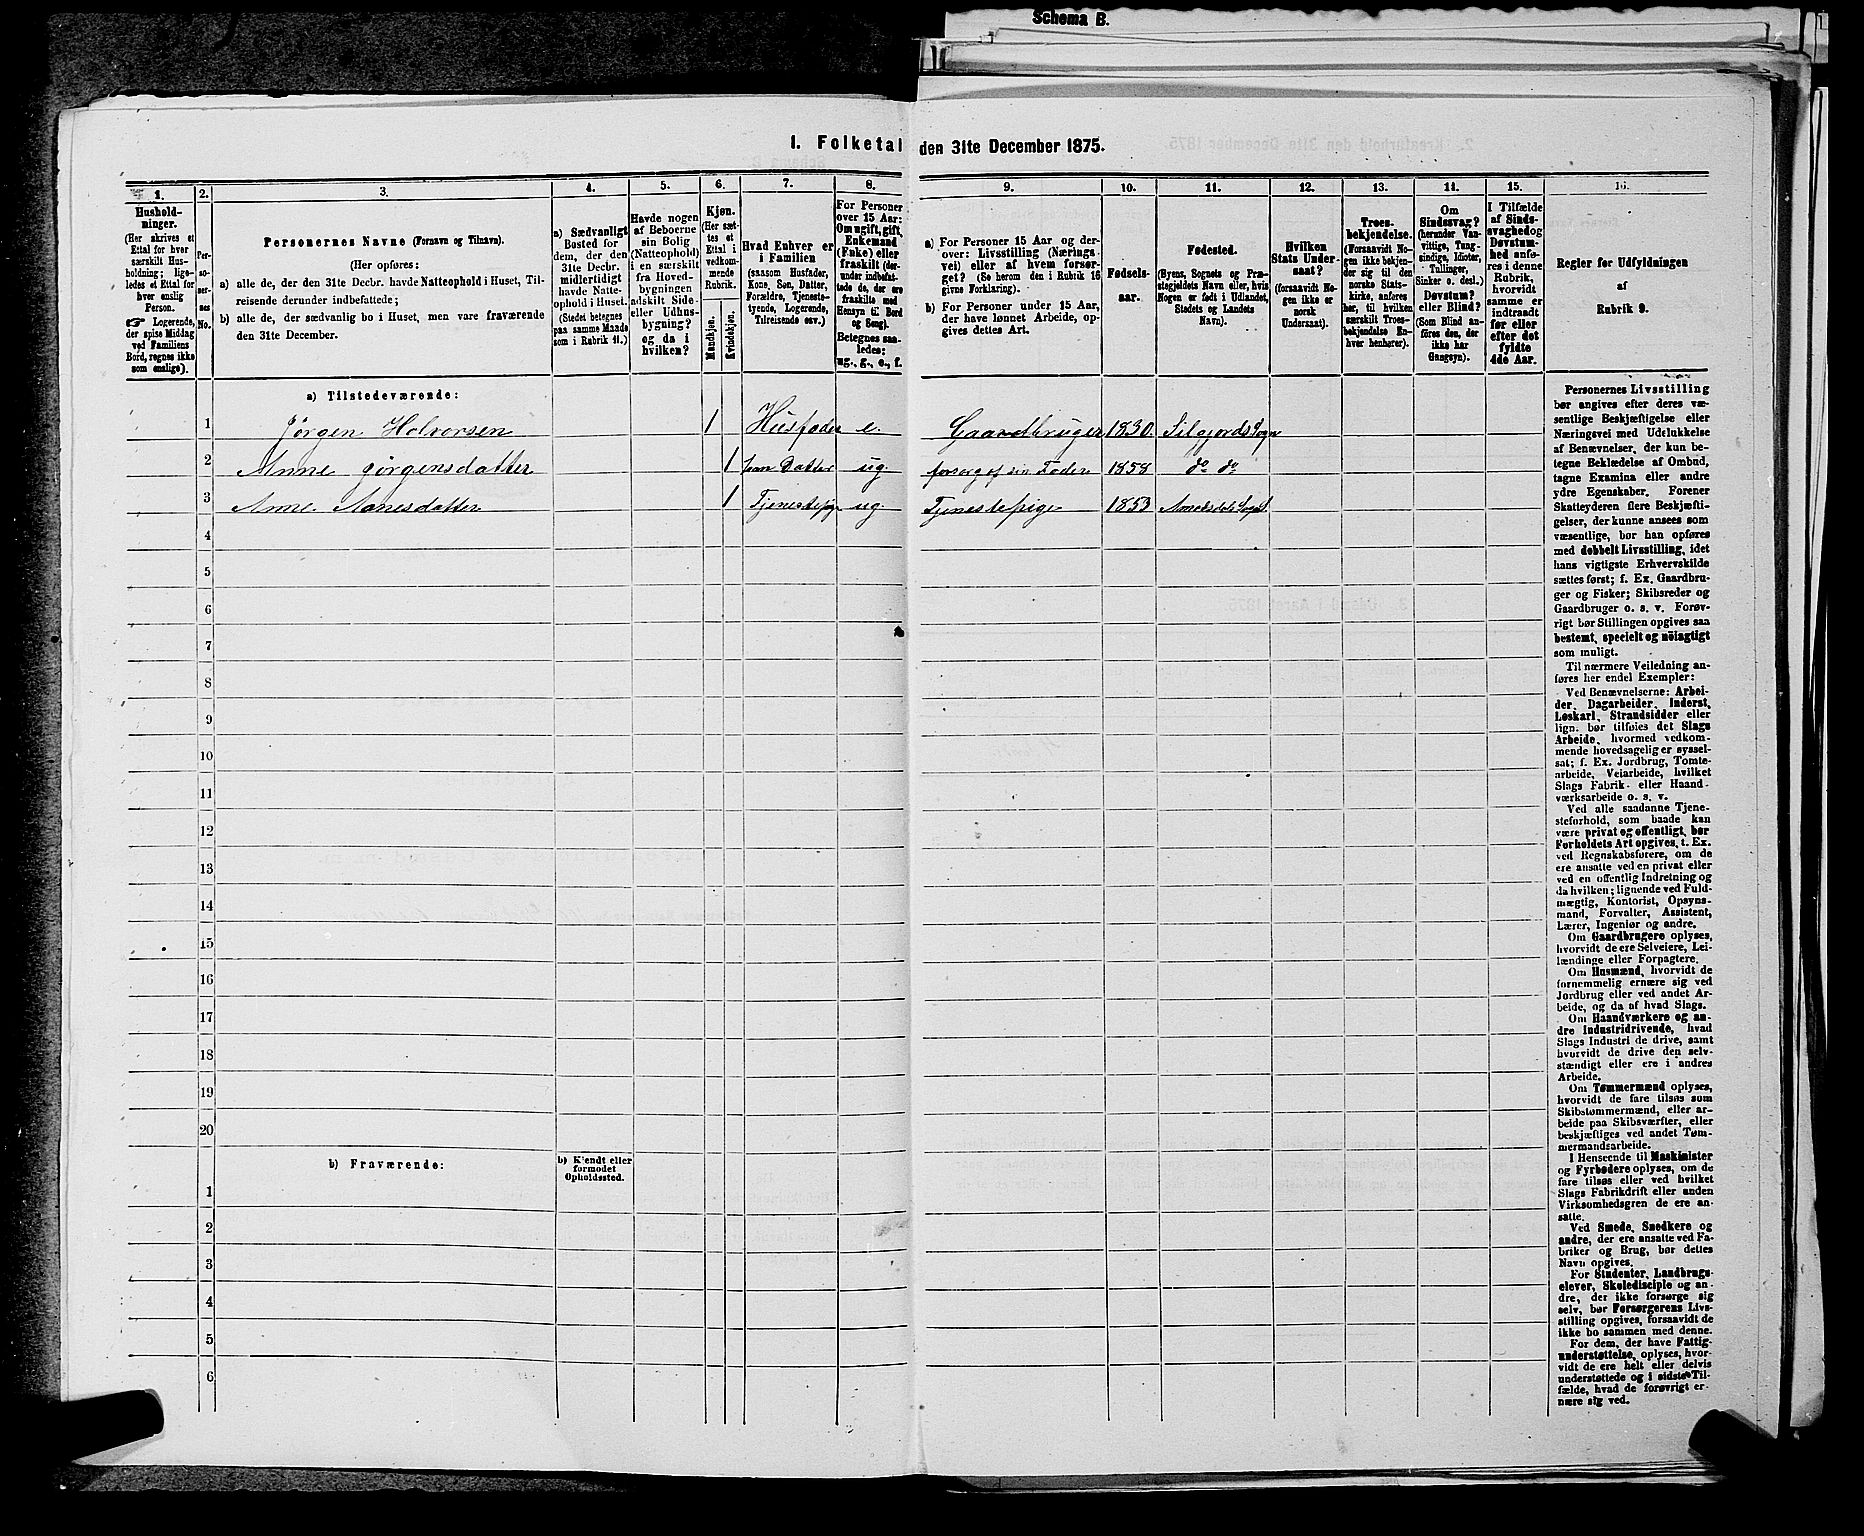 Schema B.
1. Folketal den 31te December 1875.
1. 2. 3. 4. 5. 6. 7. 8. 9. 10. 11. 12. 13. 14. 15. 16.
Hushold-
ninger.
(Her skrives et
Ettal for hver
særskilt Hus-
holdning; lige-
ledes et Ettal for
hver enslig
Person.
☞ Logerende,
der spise Middag
ved Familiens
Bord, regnes ikke
som enslige).
Per-
so-
ner-
nes
No.
Personernes Navne (Fornavn og Tilnavn).
(Her opføres:
a) alle de, der den 31te Decbr. havde Natteophold i Huset, Til-
reisende derunder indbefattede;
b) alle de, der sædvanlig bo i Huset, men vare fraværende
den 31te December.
a) Sædvanligt
Bosted for
dem, der den
31te Decbr.
midlertidigt
havde Natte-
ophold i Huset.
(Stedet betegnes
paa samme Maade
som i Rubrik 11.)
Havde nogen
af Beboerne
sin Bolig
(Natteophold)
i en særskilt
fra Hoved-
bygningen
adskilt Side-
eller Udhus-
bygning?
og da i
hvilken?
Kjøn.
(Her sæt-
tes et
Ettal i
vedkom-
mende
Rubrik.
Mandkjøn.
Kvindekjøn.
Hvad Enhver er
i Familien
(saasom Husfader,
Kone, Søn, Datter,
Forældre, Tjeneste-
tyende, Logerende,
Tilreisende osv.)
For Personer
over 15 Aar:
Om ugift, gift,
Enkemand
(Enke) eller
fraskilt (der-
under indbefat-
tede de, der ere
fraskilte med
Hensyn til Bord
og Seng).
Betegnes saa-
ledes:
ug., g., e., f.
a) For Personer 15 Aar og der-
over: Livsstilling (Nærings-
vei) eller af hvem forsør-
get? (Se herom den i Rubrik 16
givne Forklaring).
b) For Personer under 15 Aar,
der have lønnet Arbeide, op-
gives dettes Art.
Fødsels-
aar.
Fødested.
(Byens, Sognets og Præ-
stegjeldets Navn eller, hvis
Nogen er født i Udlandet,
Stedets og Landets
Navn).
Hvilken
Stats Under-
saat?
(forsaavidt No-
gen ikke er
norsk
Undersaat).
Troes-
bekjendelse.
(Forsaavidt No-
gen ikke bekjen-
der sig til den
norske Stats-
kirke, anføres
her, til hvilken
særskilt Troes-
bekjendelse En-
hver henhører).
Om
Sindssvag?
(herunder Van-
vittige, Tung-
sindige, Idioter,
Tullinger,
Sinker o. desl.)
Døvstum?
eller Blind?
(Som Blind an-
føres den, der
ikke har
Gangsyn).
I Tilfælde
af Sinds-
svaghed og
Døvstum-
hed anfø-
res i denne
Rubrik,
hvorvidt
samme er
indtraadt
før eller
efter det
fyldte
4de Aar.
Regler for Udfyldningen
af
Rubrik 9.
a) Tilstedeværende:
1 Jörgen Holvorsen 1 Husfader e. Gaardbruger 1830. Silgjords Sogn
2 Anne Jörgensdatter 1 hans Datter ug. forsørg af sin Fader 1858 do do
3 Anne Aanesdatter 1 Tjenestepige ug. Tjenestepige 1853
4
5
6
7
8
9
10
11
12
13
14
15
16
17
18
19
20
b) Fraværende:
b) Kjendt eller
formodet
Opholdssted.
1
2
3
4
5
6
Personernes Livsstilling
bør angives efter deres væ-
sentlige Beskjæftigelse eller
Næringsvei med Udelukkelse
af Benævnelser, der kun be-
tegne Beklædelse af Ombud,
tagne Examina eller andre
ydre Egenskaber. Forener
Skatteyderen flere Beskjæfti-
gelser, der kunne ansees som
væsentlige, bør han opføres
med dobbelt Livsstilling, idet
hans vigtigste Erhvervskilde
sættes først; f. Ex. Gaardbru-
ger og Fisker; Skibsreder og
Gaardbruger o. s. v. Forøv-
rigt bør Stillingen opgives saa
bestemt, specielt og nøiagtigt
som muligt.
Til nærmere Veiledning an-
føres her endel Exempler:
Ved Benævnelserne: Arbei-
der, Dagarbeider, Inderst,
Løskarl, Strandsidder eller
lign. bør tilføies det Slags
Arbeide, hvormed vedkom-
mende hovedsagelig er syssel-
sat; f. Ex. Jordbrug, Tomte-
arbeide, Veiarbeide, hvilket
Slags Fabrik- eller Haand-
værksarbeide o. s. v.
Ved alle saadanne Tjene-
steforhold, som baade kan
være privat og offentligt, bør
Forholdets Art opgives, t. Ex.
ved Regnskabsførere, om de
ere ansatte ved en privat eller
ved en offentlig Indretning og
da hvilken; lignende ved Fuld-
mægtig, Kontorist, Opsyns-
mand, Forvalter, Assistent,
Lærer, Ingeniør og andre.
Om Gaardbrugere oplyses,
hvorvidt de ere Selveiere, Lei-
lændinge eller Forpagtere.
Om Husmænd, hvorvidt de
fornemmelig ernære sig ved
Jordbrug eller ved andet Ar-
beide, og da af hvad Slags.
Om Haandværkere og an-
dre industridrivende, hvad
Slags Industri de drive, samt
hvorvidt de drive den selv-
stændigt eller ere i andres
Arbeide.
Om Tømmermænd oplyses,
hvorvidt de fare tilsøs som
Skibstømmermænd, eller ar-
beide paa Skibsværfter, eller
beskjæftiges ved andet Tøm-
mermandsarbeide.
I Henseende til Maskinister
og Fyrbødere oplyses, om de
fare tilsøs eller ved hvilket
Slags Fabrikdrift eller anden
Virksomhedsgren de ere an-
satte.
Ved Smede, Snedkere og
andre, der ere ansatte ved Fa-
briker og Brug, bør dettes
Navn opgives.
For Studenter, Landbrugs-
elever, Skoledisciple og an-
dre, der ikke forsørge sig
selv, bør Forsørgerens Livs-
stilling opgives, forsaavidt de
ikke bo sammen med denne.
For dem, der have Fattig-
understøttelse, oplyses, hvor-
vidt de ere helt eller delvis
understøttede og i sidste Til-
fælde, hvad de forøvrigt er-
nære sig ved.